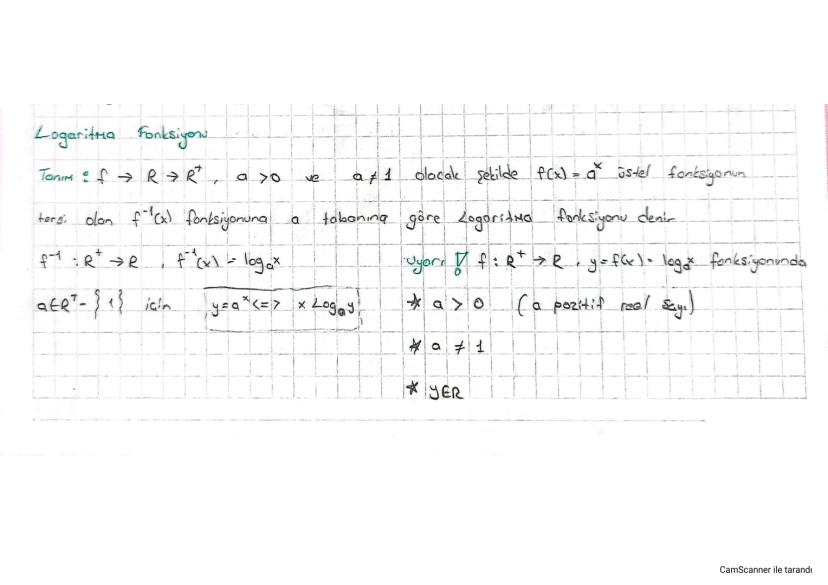 Logaritma Fonksiyonu
Tanım : f → R → R⁺ , a >0 ve a ≠ 1 olacak şekilde f(x) = aˣ üstel fonksiyonun
tersi olan f⁻¹(x) fonksiyonuna a tabanına göre Logaritma fonksiyonu denir
f⁻¹ : R⁺ → R , f⁻¹(x) = logₐx
a∈R⁺ - { 1 } için y = aˣ <=> x Logₐy
Uyarı ! f : R⁺ → R , y = f(x) = logₐx fonksiyonunda
* a > 0 (a pozitif reel sayı)
* a ≠ 1
* y∈R
CamScanner ile tarandı